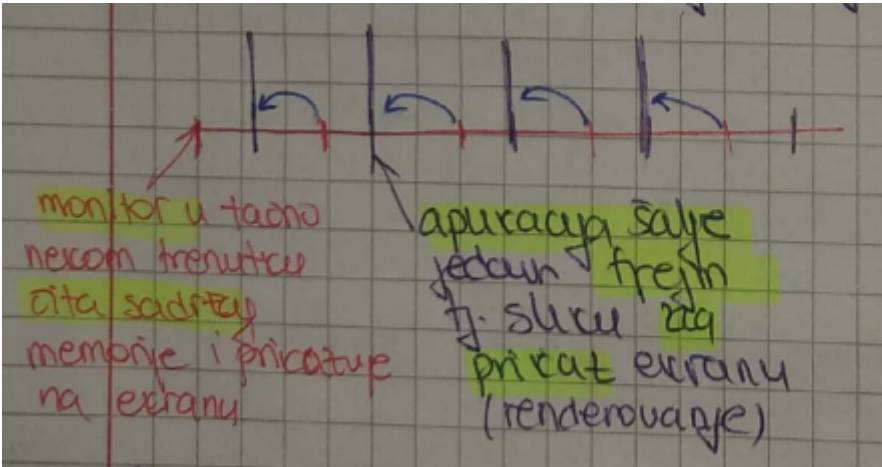 monitor u tačno
nekom trenutku
čita sadržaj
memorije i prikazuje
na ekranu
aplikacija šalje
jedan frejm
tj. sliku za
prikaz ekranu
(renderovanje)